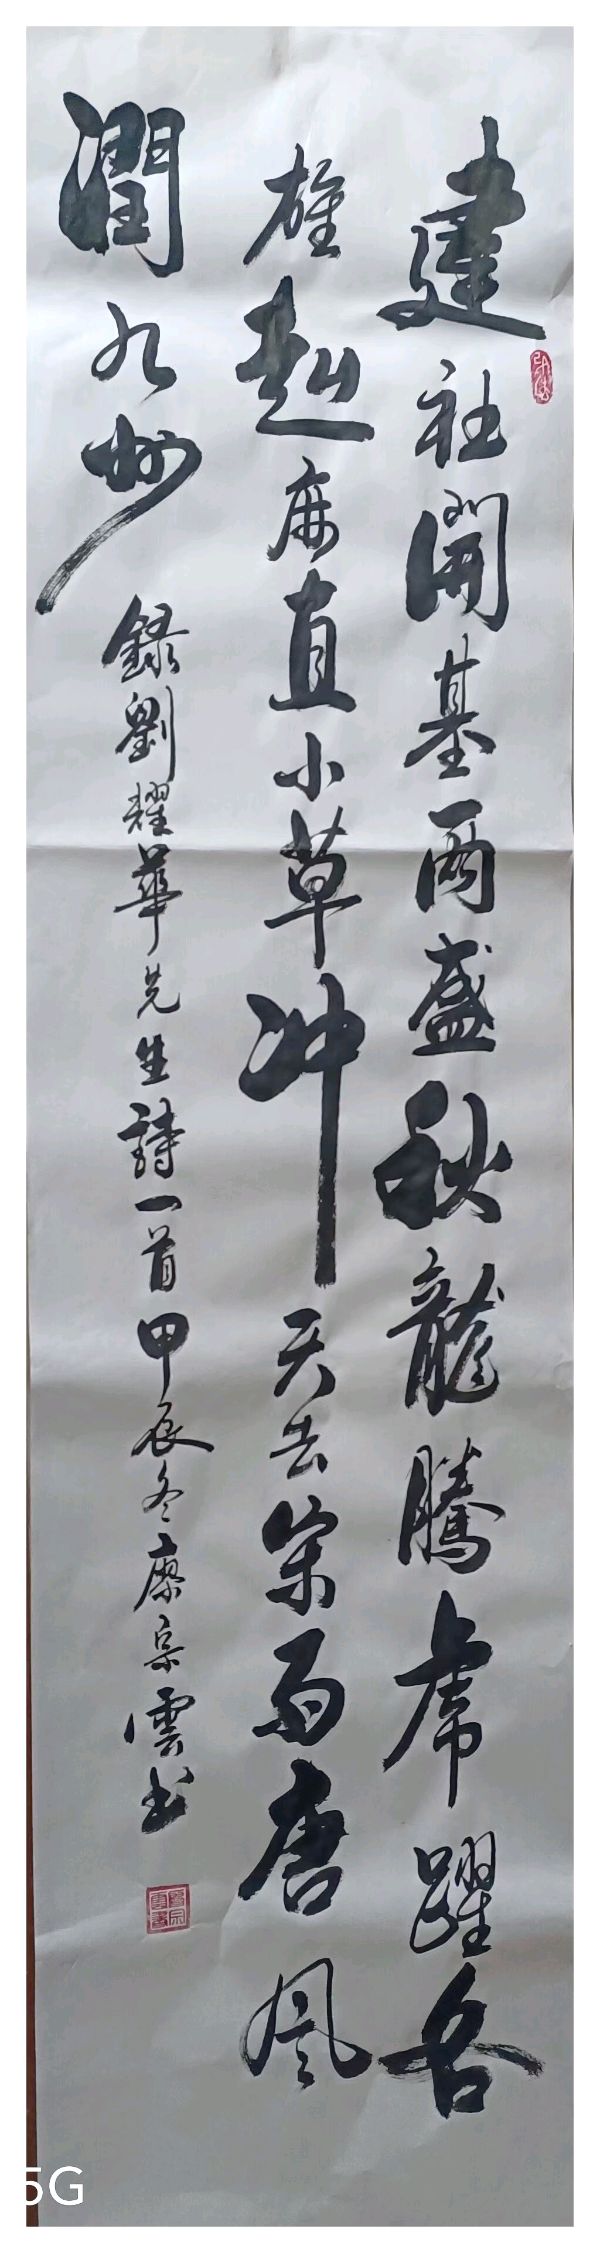 建社開基两盛秋龍騰虎躍各
雄超廉直小草冲天去宋雨唐風
潤九州
錄劉耀華先生詩一首甲辰冬廖宗雲书
5G